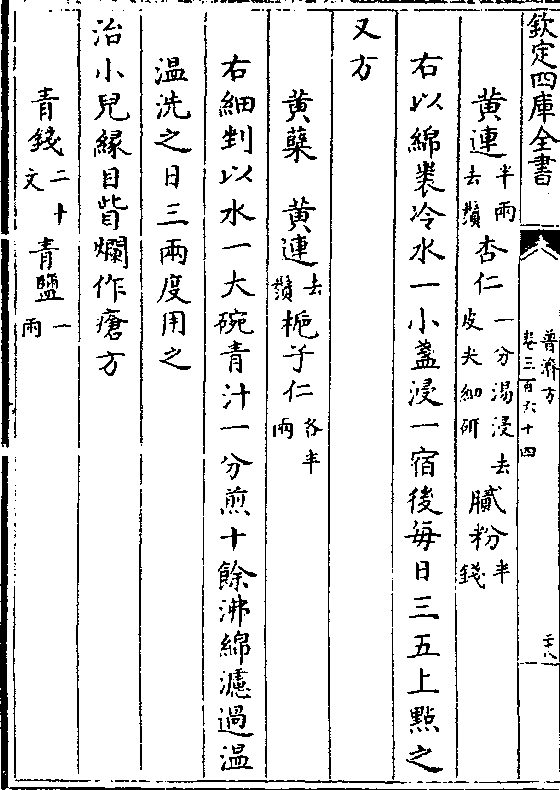 欽定四庫全書
普濟方
卷三百六十四
二十八
黃連半兩去鬚杏仁一分湯浸去皮尖細研膩粉半錢
右以綿裹冷水一小盞浸一宿後每日三五上點之
又方
黃蘗 黃連去鬚梔子仁各半兩
右細剉以水一大碗青汁一分煎十餘沸綿濾過温
温洗之日三兩度用之
治小兒緣目眥爛作瘡方
青錢二十文青鹽一兩